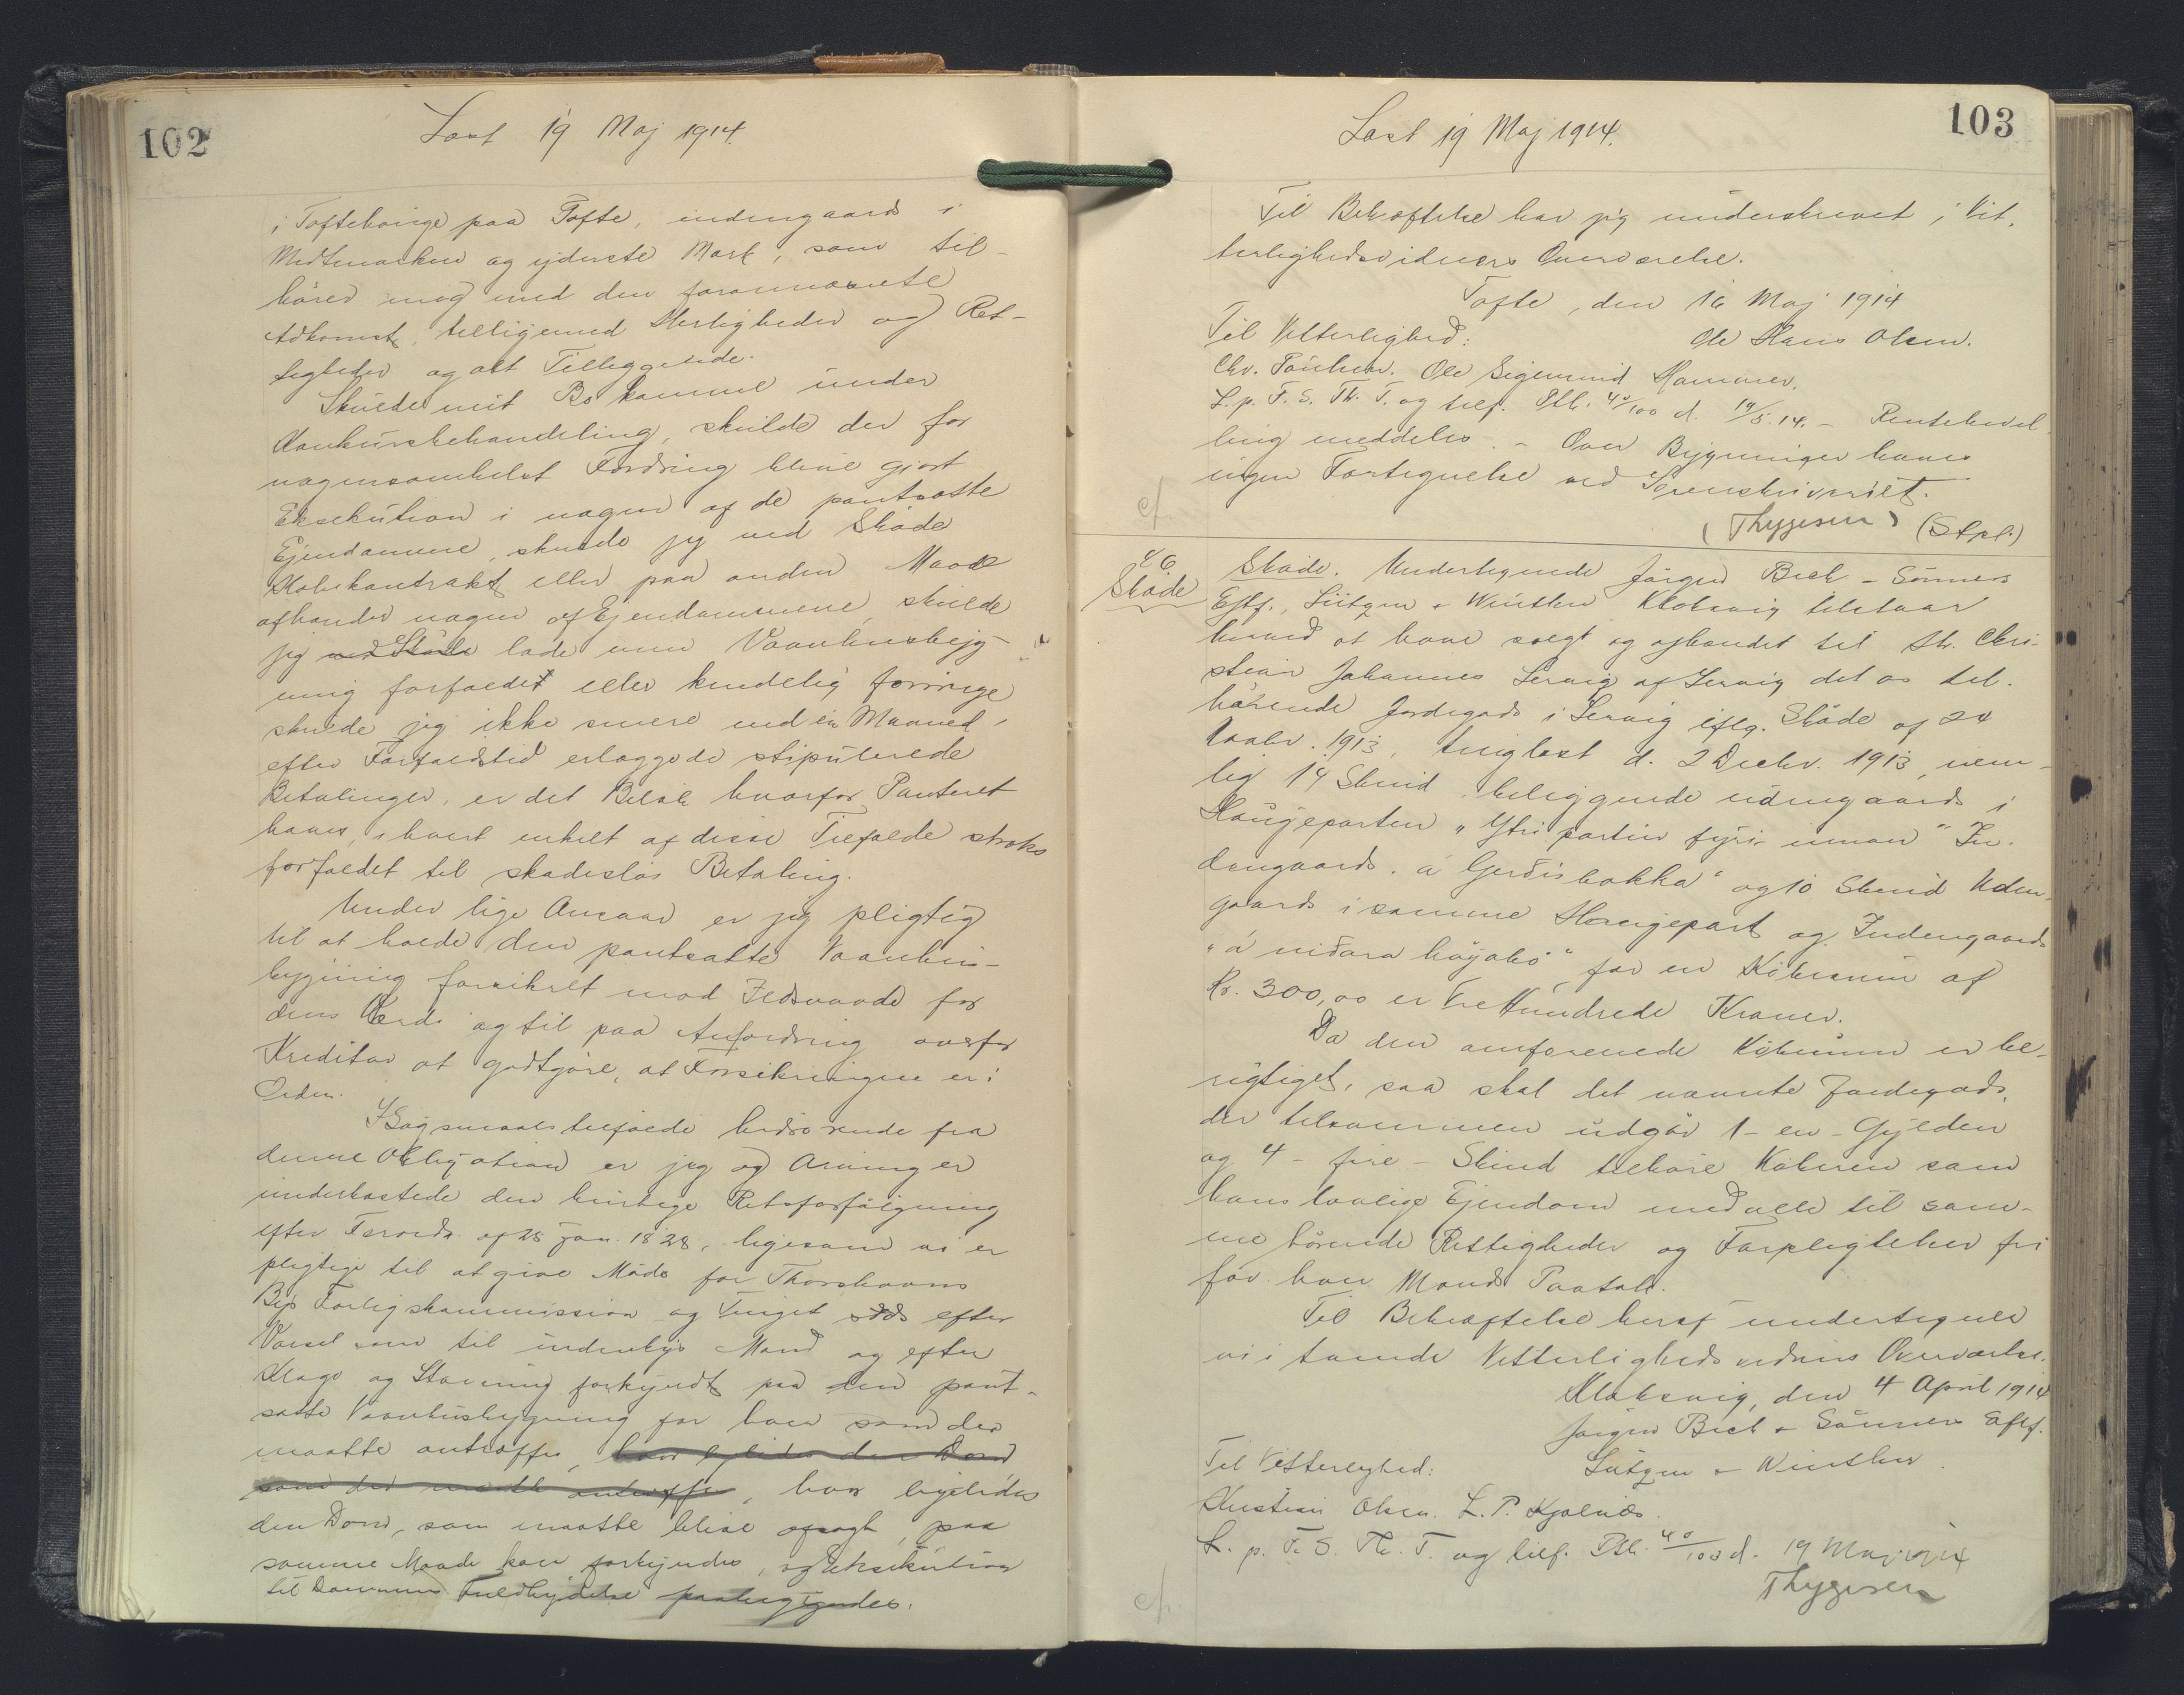 102
Læst 19 Maj 1914.
i Toftehauge paa Tofte, indengaards i
Midtemarken og yderste Mark, som til-
hører mig med den forannævnte
Adkomst, tilligemed Herligheder og Ret-
tigheder og alt Tilliggende.
Skulde mit Bo komme under
Konkursbehandling, skulde der for
nogensomhelst Fordring blive gjort
Eksekution i nogen af de pantsatte
Ejendomme, skulde jeg ved Skøde
Købekontrakt eller paa anden Maade
afhænde nogen af Ejendommene, skulde
jeg ved Skøde lade min Vaanhusbyg-
ning forfalde eller kendelig forringe
skulde jeg ikke senere end en Maaned
efter Forfaldstid erlægge de stipulerede
Betalinger, er det Beløb hvorfor Panteret
haves, i hvert enkelt af disse Tilfælde straks
forfaldet til skadesløs Betaling.
Under lige Ansvar er jeg pligtig
til at holde den pantsatte Vaanhus-
bygning forsikret mod Ildsvaade for
dens Værdi og til paa Anfordring overfor
Kreditor at godtgøre, at Forsikringen er i
Orden.
I Søgsmaalstilfælde hidrørende fra
denne Obligation er jeg og Arvinger
underkastede den hurtige Retsforfølgning
efter Forordn. af 28 Jan. 1828, ligesom vi er
pligtige til at give Møde for Thorshavns
Bys Forligskommission og Tinget sdds efter
Varsel som til indenbys Mand og efter
Klage og Stævning forkyndt paa den pant-
satte Vaanhusbygning for hvem som der
maatte antræffes, hvor ligeledes den Dom
som der maatte antræffes, hvor ligeledes
den Dom, som maatte blive afsagt, paa
samme Maade kan forkyndes, og Eksekution
til Dommens Fuldbyrdelse paabegyndes.
103
Læst 19 Maj 1914.
Til Bekræftelse har jeg underskrevet i Vit-
terlighedsvidners Overværelse.
Tofte, den 16 Maj 1914
Til Vitterlighed: Ole Hans Olsen.
Chr. Poulsen. Ole Sigmund Hammer.
L. p. F. S. Th. T. og tilf. Ptb. 40/100 d. 19/5. 14. - Rentebevil-
ling meddeles. - Over Bygninger haves
ingen Fortegnelse ved Sorenskriveriet.
cf.
(Thygesen) (Stpl.)
26
Skøde
Skøde. Undertegnede Jørgen Bech & Sønners
Eftf., Lützen & Winther Klaksvig tilstaar
herved at have solgt og afhændet til Hr. Chri-
stian Johannes Lervig af Lervig det os til-
hørende Jordegods i Lervig iflg. Skøde af 24
Novbr. 1913, tinglæst d. 2 Decbr. 1913, nem-
lig 14 Skind, beliggende udengaards i
Haugeparten "Ytri partin fyri innan" In-
dengaards "á Gerðisbakka" og 10 Skind Uden-
gaards i samme Haugepart og Indengaards
"á niðara høgabø", for en Købesum af
Kr. 300,00 er Tre Hundrede Kroner.
Da den omforenede Købesum er be-
rigtiget, saa skal det nævnte Jordegods,
der tilsammen udgør 1 - en - Gylden
og 4 - fire - Skind tilhøre Køberen som
hans lovlige Ejendom med alle til sam-
me hørende Rettigheder og Forpligtelser fri
for hver Mands Paatale.
Til Bekræftelse heraf undertegner
vi i tvende Vitterlighedsvidners Overværelse.
Klaksvig, den 4 April 1914
Jørgen Bech & Sønners Eftf.
Til Vitterlighed: Lützen & Winther.
Christian Olsen. L. P. Kjølnæs.
L. p. F. S. Th. T. og tilf. Ptb. 40/100 d. 19 Maj 1914
Thygesen
cf.